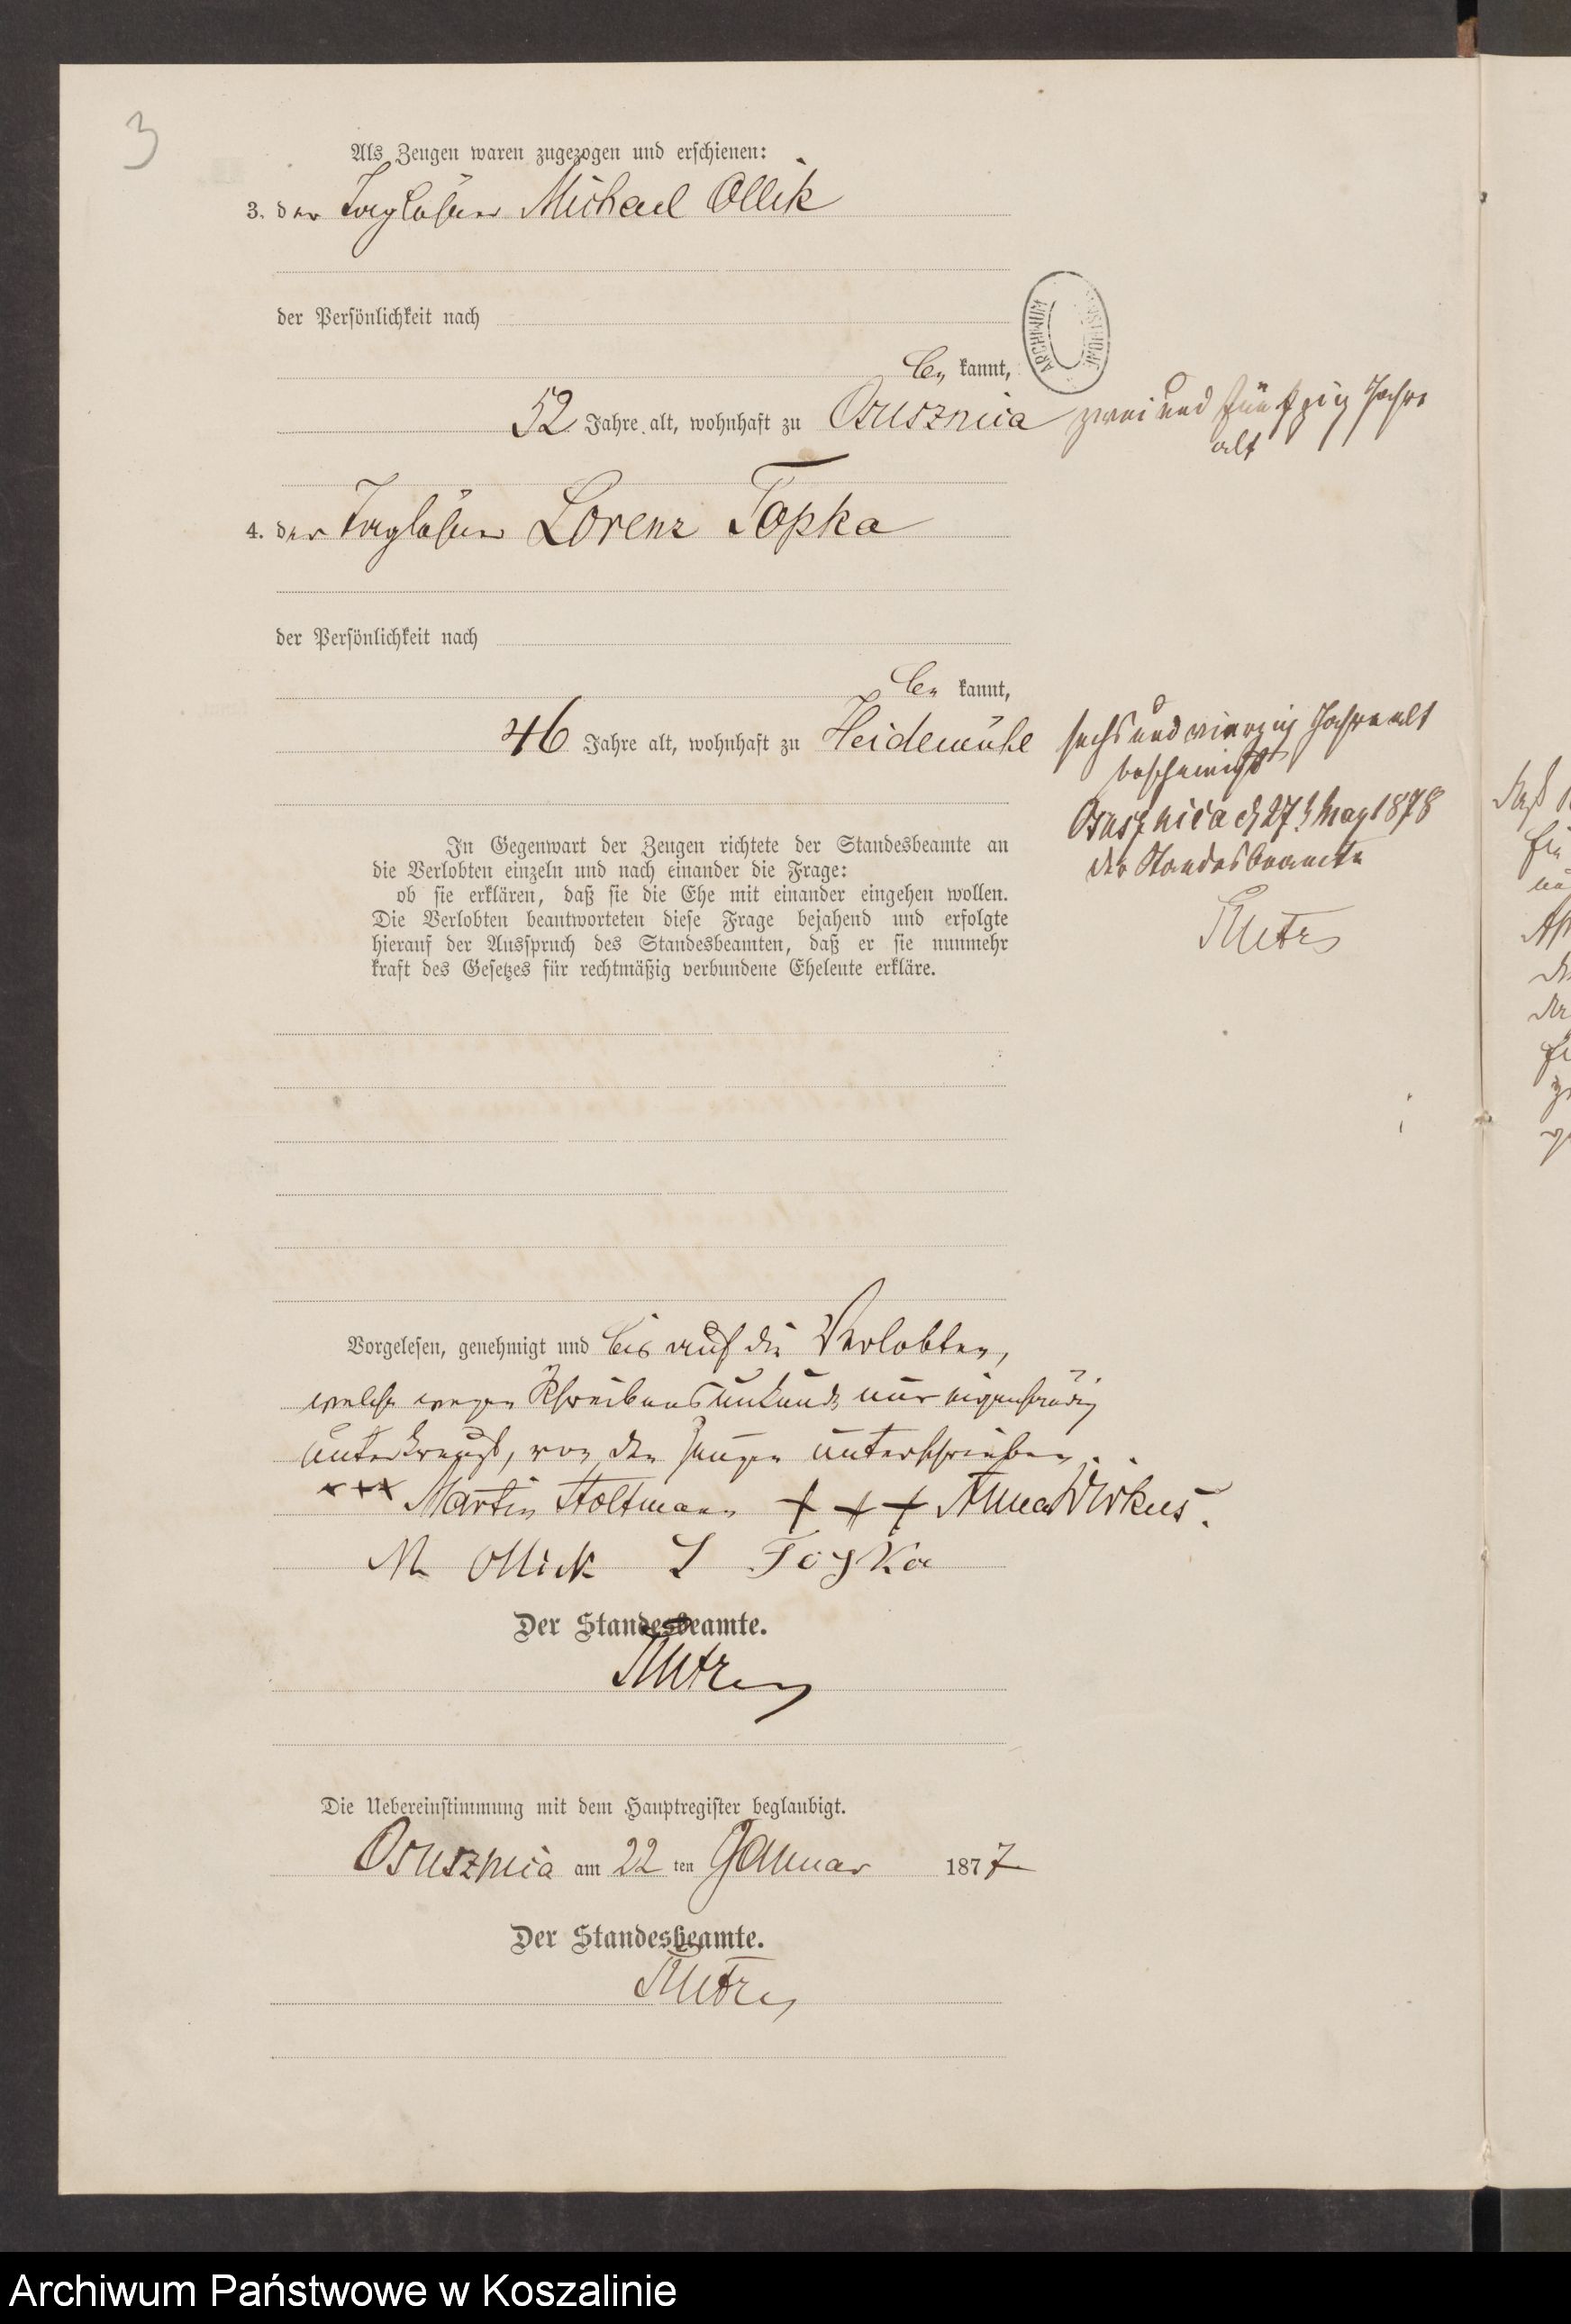 3
Als Zeugen waren zugezogen und erschienen:
3. der Taglöhner Michael Ollik
der Persönlichkeit nach
be kannt,
52 Jahre alt, wohnhaft zu Osusznica zwei und fünfzig Jahre
alt
4. der Taglöhner Lorenz Topka
der Persönlichkeit nach
be kannt,
46 Jahre alt, wohnhaft zu Heidemühle sechs und vierzig Jahre alt
bescheinigt
Osusznica d 27t May 1878
der Standesbeamte
In Gegenwart der Zeugen richtete der Standesbeamte an
die Verlobten einzeln und nach einander die Frage:
ob sie erklären, daß sie die Ehe mit einander eingehen wollen.
Die Verlobten beantworteten diese Frage bejahend und erfolgte
hierauf der Ausspruch des Standesbeamten, daß er sie nunmehr
kraft des Gesetzes für rechtmäßig verbundene Eheleute erkläre.
Vorgelesen, genehmigt und bis auf die Verlobten,
welche wegen Schreibensunkunde nur eigenhändig
unterkreuzt, von den Zeugen unterschrieben.
xxx Martin Stoltmann +++ Anna Wirkus.
M Ollick L Topka
Der Standesbeamte.
Die Uebereinstimmung mit dem Hauptregister beglaubigt.
Osusznica am 22 ten Januar 1877
Der Standesbeamte.
ARCHIWUM
Archiwum Państwowe w Koszalinie